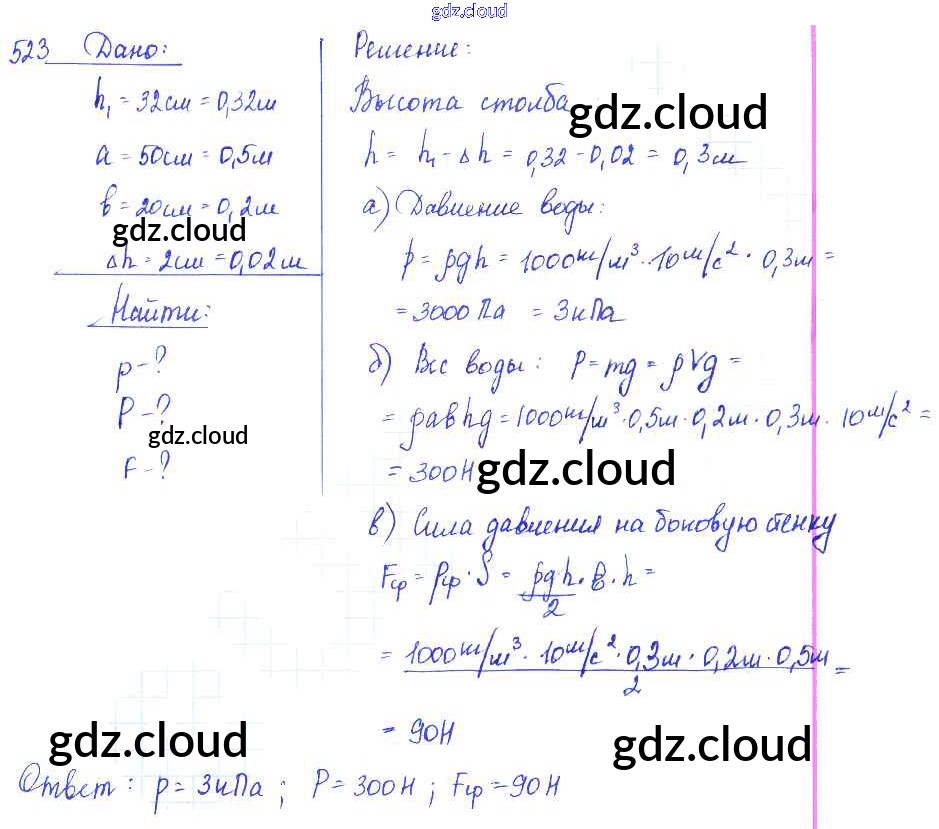 gdz.cloud
523 Дано:
h₁ = 32см = 0,32м
a = 50см = 0,5м
в = 20см = 0,2м
gdz.cloud
Δh = 2см = 0,02м
Найти:
p - ?
P - ?
gdz.cloud
F - ?
Решение:
Высота столба
gdz.cloud
h = h₁ - Δh = 0,32 - 0,02 = 0,3м
а) Давление воды:
p = ρgh = 1000кг/м³ · 10м/с² · 0,3м =
= 3000 Па = 3кПа
б) Вес воды: P = mg = ρVg =
= ρавhg = 1000кг/м³ · 0,5м · 0,2м · 0,3м · 10м/с² =
= 300Н
gdz.cloud
в) Сила давления на боковую стенку
Fср = pср · S = ρgh/2 · в · h =
= 1000кг/м³ · 10м/с² · 0,3м · 0,2м · 0,5м / 2 =
= 90Н
gdz.cloud
gdz.cloud
Ответ: p = 3кПа; P = 300Н; Fср = 90Н